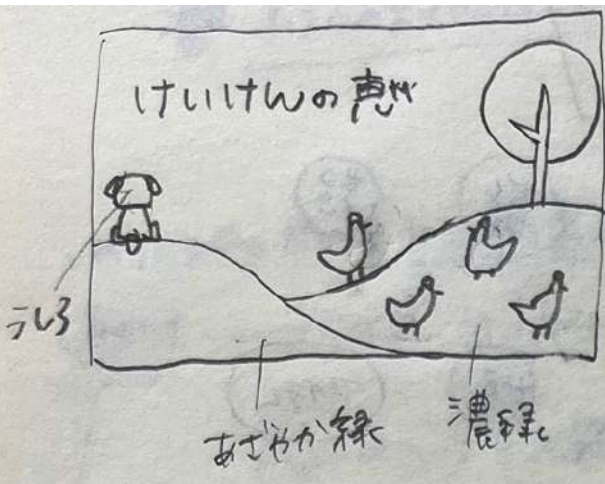 けいけんの恵み
うしろ
あざやか緑
濃緑